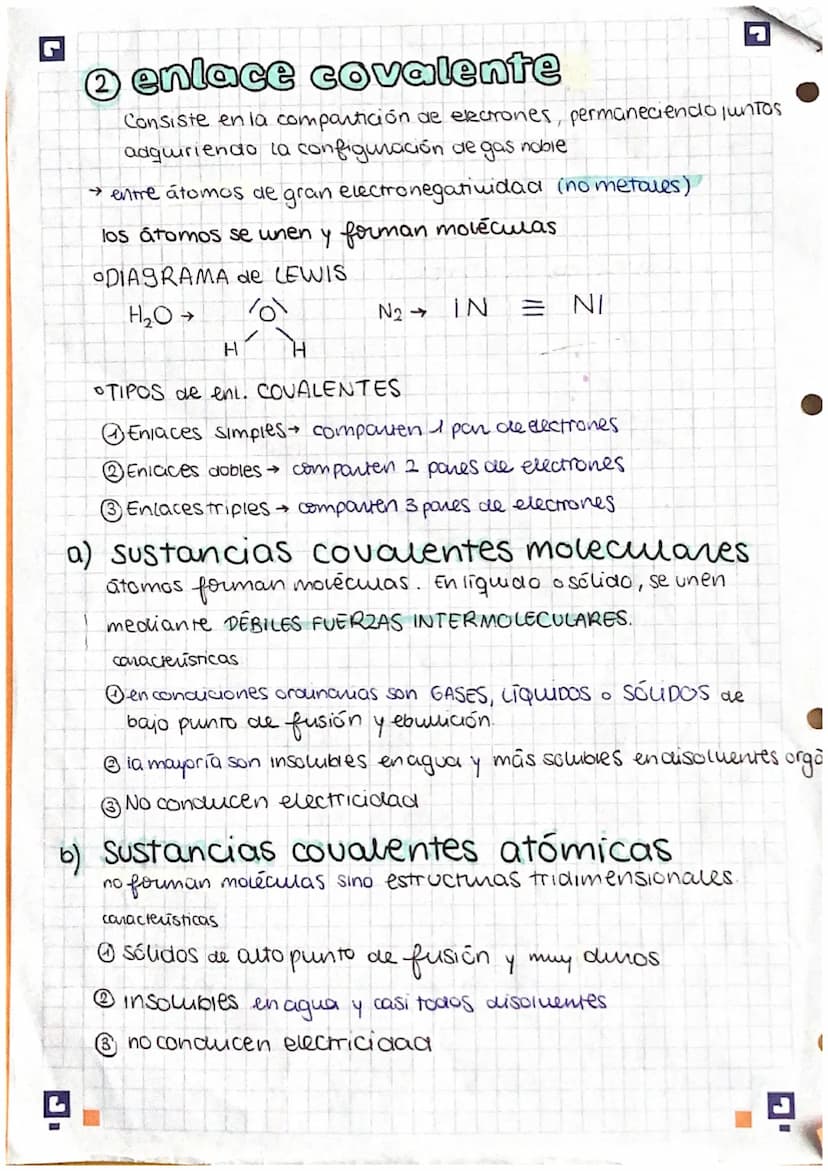 ② enlace covalente
Consiste en la compartición de electrones, permaneciendo juntos
adquiriendo la configuración de gas noble
→ entre átomos de gran electronegatividad (no metales)
los átomos se unen y forman moléculas
°DIAGRAMA de LEWIS
H₂O → O N₂ → IN ≡ NI
H H
°TIPOS de enl. COVALENTES
① Enlaces simples → comparten 1 par de electrones
② Enlaces dobles → comparten 2 pares de electrones
③ Enlaces triples → comparten 3 pares de electrones
a) sustancias covalentes moleculares
átomos forman moléculas. En líquido o sólido, se unen
mediante DÉBILES FUERZAS INTERMOLECULARES.
características
① en condiciones ordinarias son GASES, LÍQUIDOS o SÓLIDOS de
bajo punto de fusión y ebullición.
② la mayoría son insolubles en agua y más solubles en disolventes orgá
③ No conducen electricidad
b) sustancias covalentes atómicas
no forman moléculas sino estructuras tridimensionales.
características
① sólidos de alto punto de fusión y muy duros
② insolubles en agua y casi todos disolventes
③ no conducen electricidad